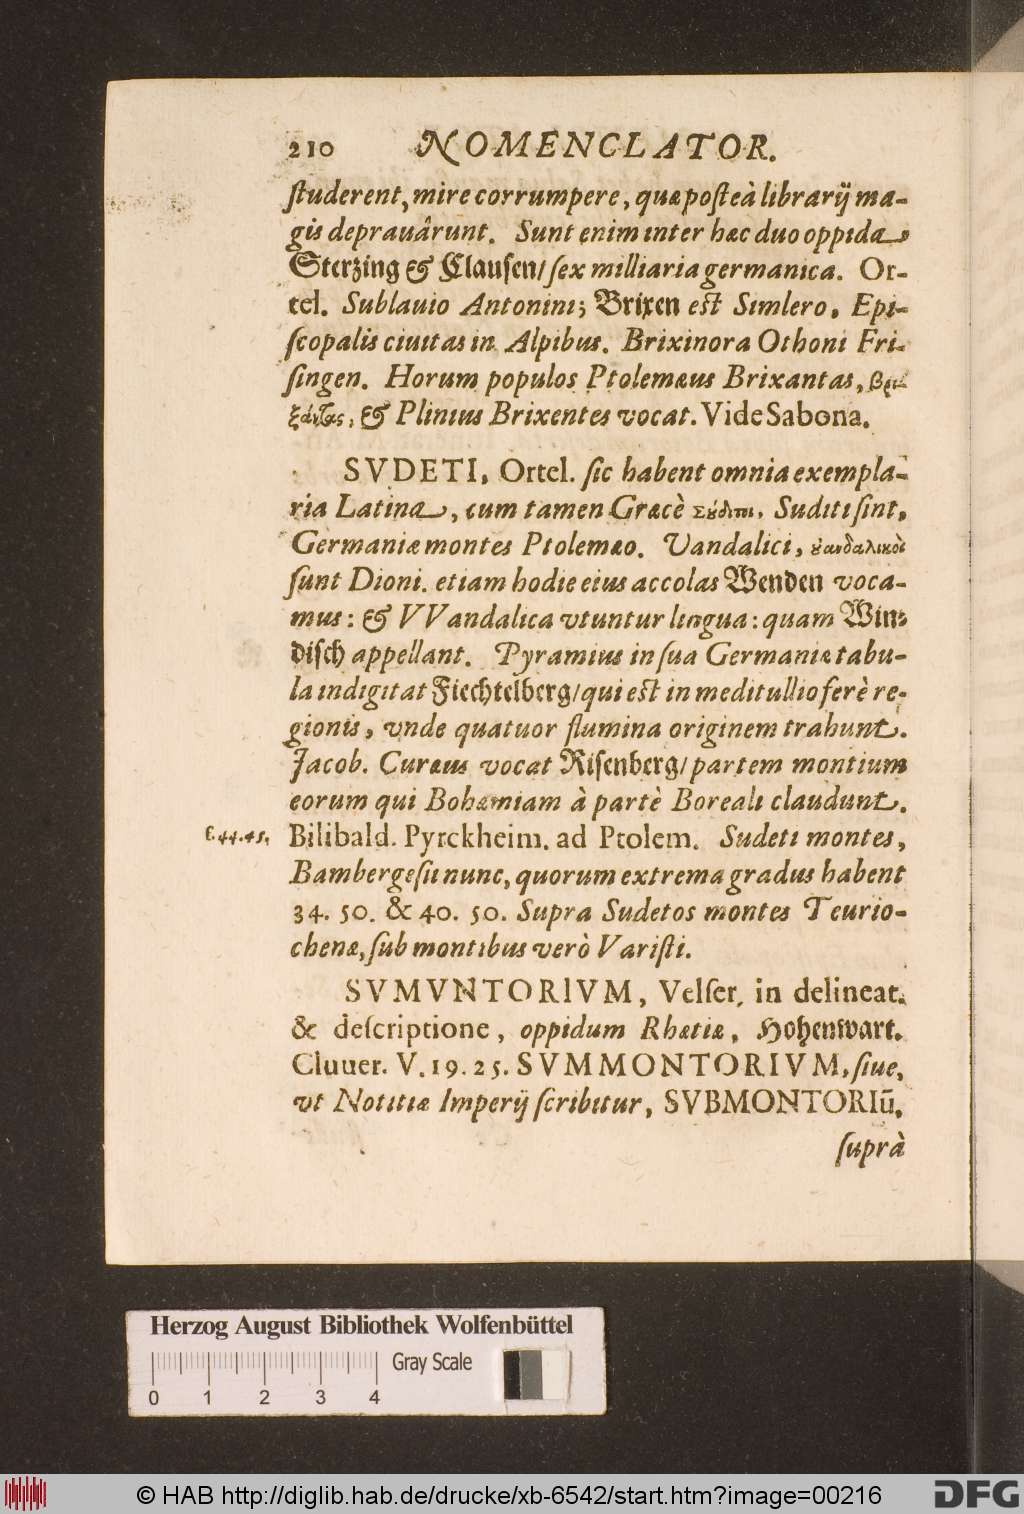 210 NOMENCLATOR.
ſtuderent, mire corrumpere, quæ poſteà librarij ma-
gis deprauârunt. Sunt enim inter hæc duo oppida
Sterzing & Clauſen/ ſex milliaria germanica. Or-
tel. Sublauio Antonini; Brixen eſt Simlero, Epi-
ſcopalis ciuitas in Alpibus. Brixinora Othoni Fri-
ſingen. Horum populos Ptolemæus Brixantas, βρι-
ξάντας, & Plinius Brixentes vocat. Vide Sabona.
SVDETI, Ortel. ſic habent omnia exempla-
ria Latina, cum tamen Græcè Σούδιτοι, Suditi ſint,
Germaniæ montes Ptolemæo. Vandalici, ȣ̓ανδαλικοὶ
ſunt Dioni. etiam hodie eius accolas Wenden voca-
mus: & VVandalica vtuntur lingua: quam Win-
diſch appellant. Pyramius in ſua Germaniæ tabu-
la indigitat Fiechtelberg/ qui eſt in meditullio ferè re-
gionis, vnde quatuor flumina originem trahunt.
Jacob. Curæus vocat Riſenberg/ partem montium
eorum qui Bohæmiam à partè Boreali claudunt.
E. 44. 45. Bilibald. Pyrckheim. ad Ptolem. Sudeti montes,
Bambergeſii nunc, quorum extrema gradus habent
34. 50. & 40. 50. Supra Sudetos montes Teurio-
chenæ, ſub montibus verò Variſti.
SVMVNTORIVM, Velſer, in delineat.
& deſcriptione, oppidum Rhætiæ, Hohenwart.
Cluuer. V. 19. 25. SVMMONTORIVM, ſiue,
vt Notitiæ Imperij ſcribitur, SVBMONTORIū.
ſuprà
Herzog August Bibliothek Wolfenbüttel
Gray Scale
0 1 2 3 4
© HAB http://diglib.hab.de/drucke/xb-6542/start.htm?image=00216
DFG